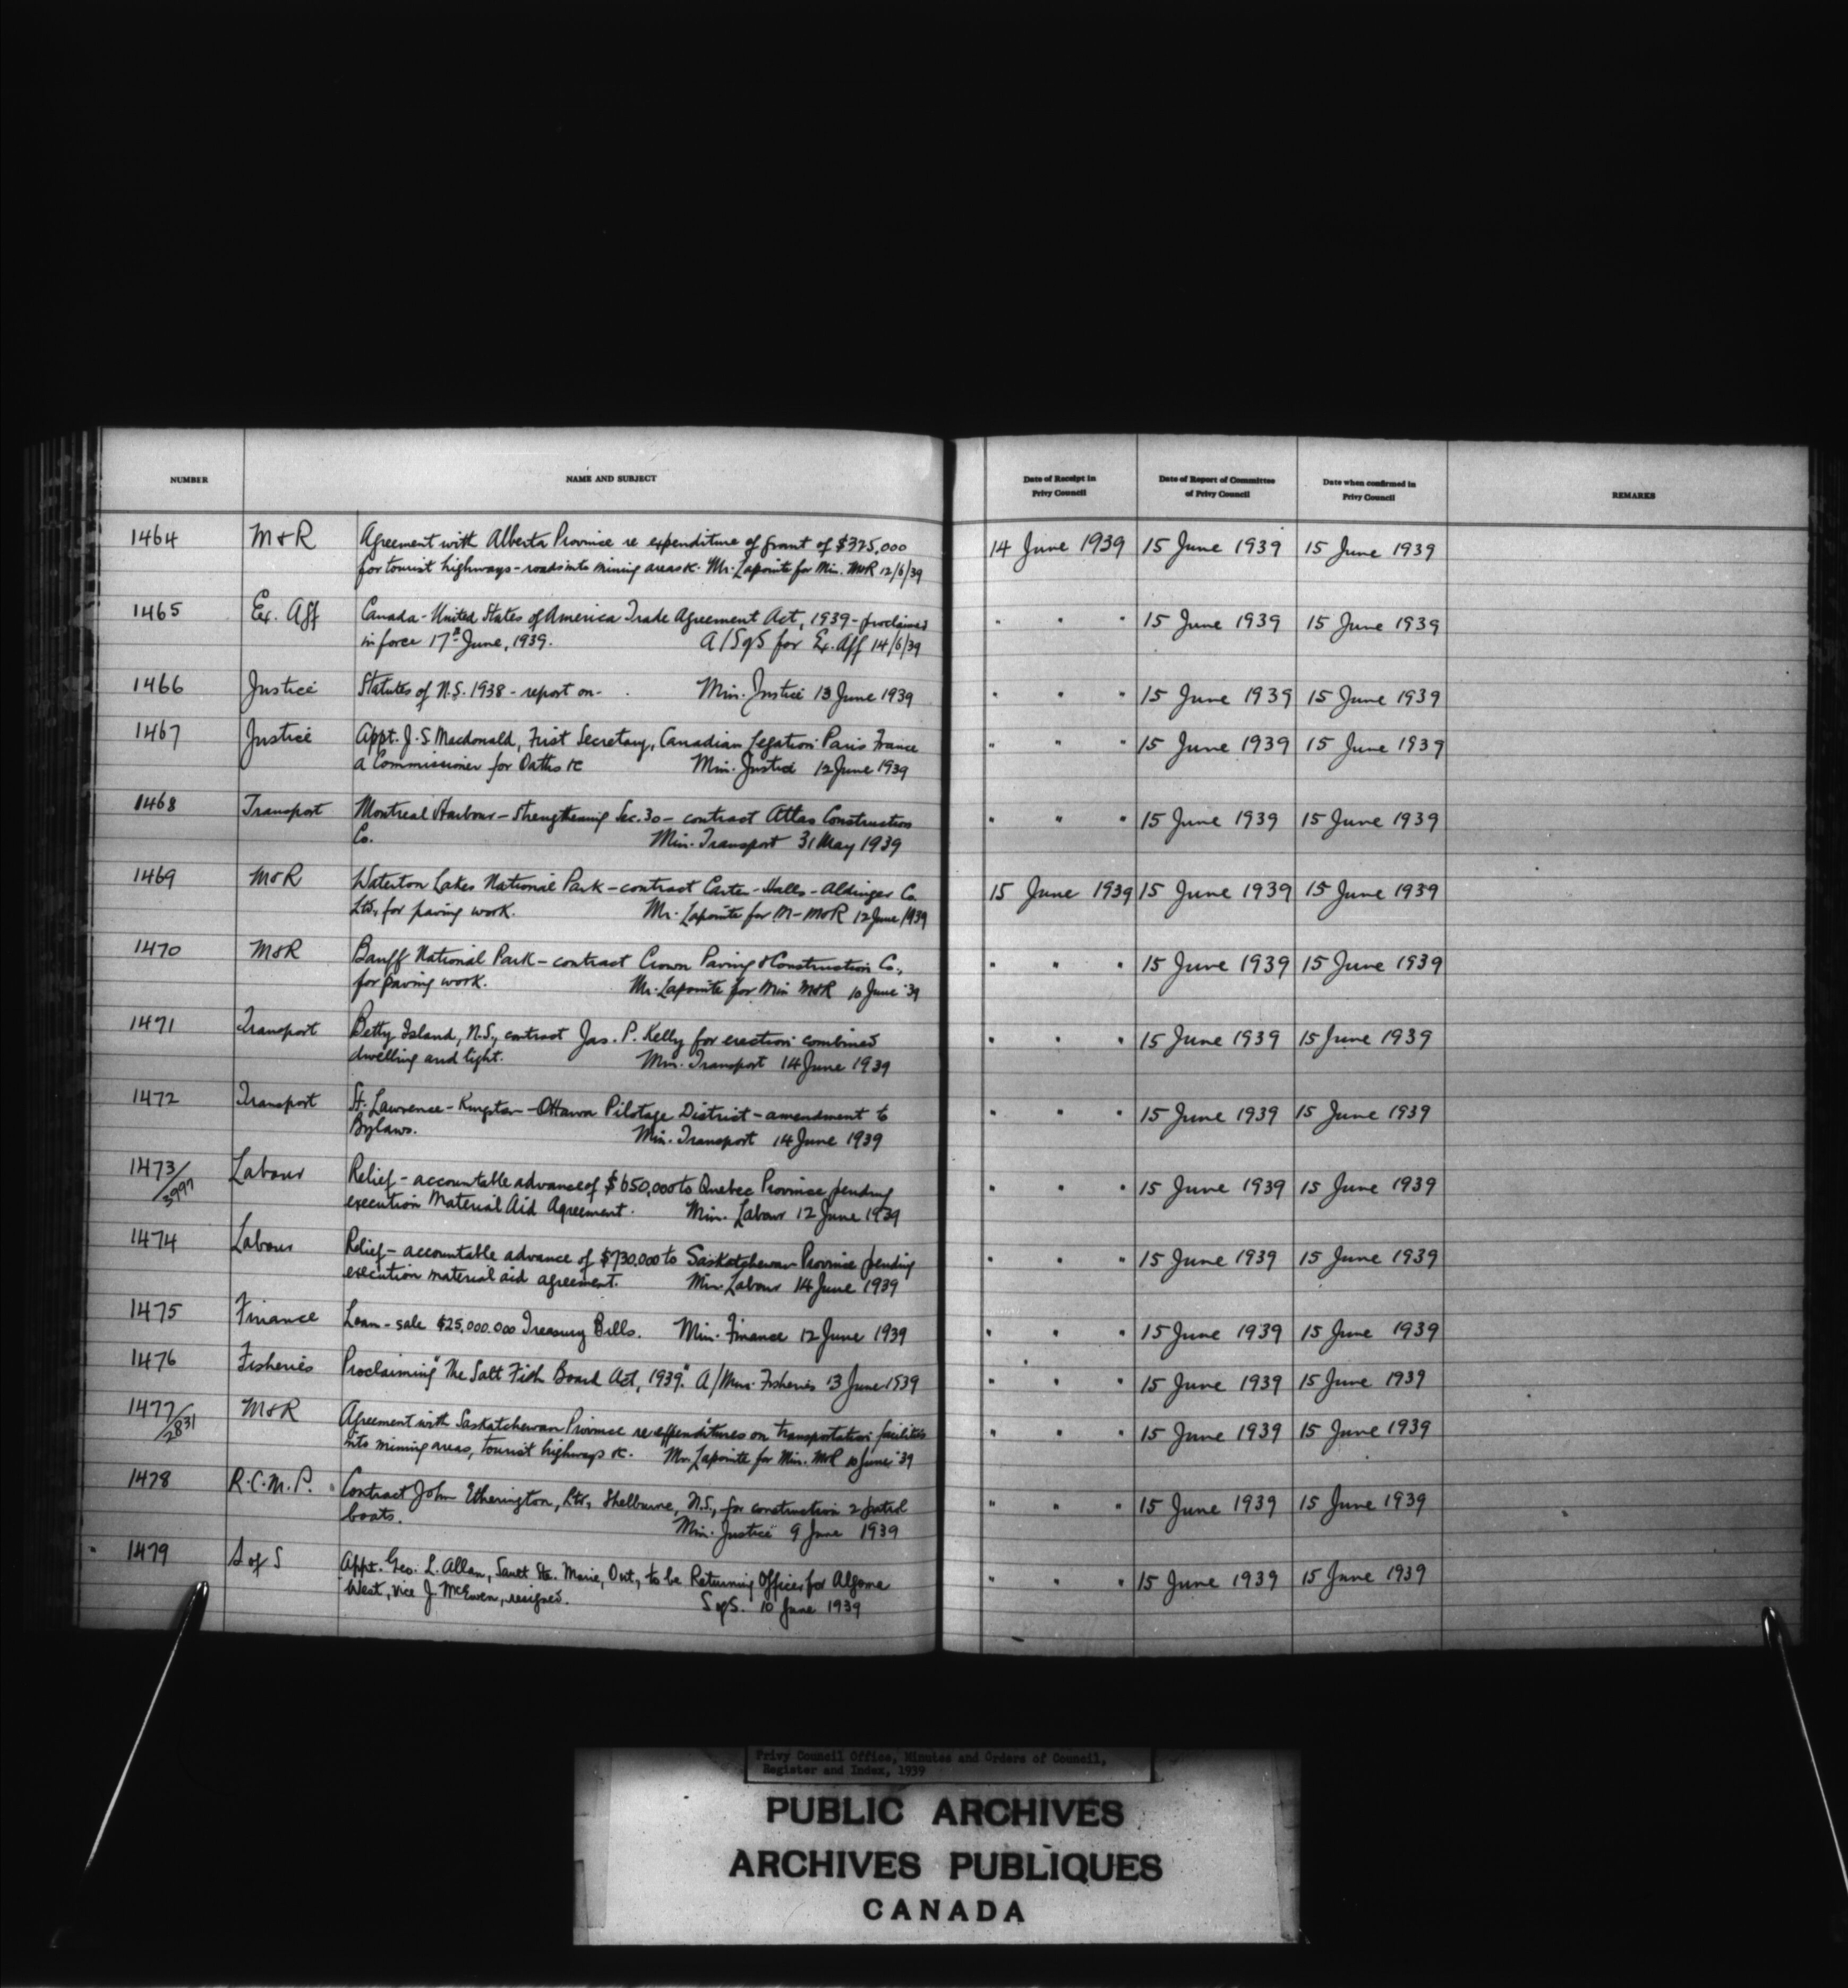 NUMBER NAME AND SUBJECT Date of Receipt in Privy Council Date of Report of Committee of Privy Council Date when confirmed in Privy Council REMARKS
1464 M & R Agreement with Alberta Province re expenditure of grant of $325,000 14 June 1939 15 June 1939 15 June 1939
for tourist highways - roads into mining areas &c. Mr. Lapointe for Min. M&R 12/6/39
1465 Ex. Aff Canada - United States of America Trade Agreement Act, 1939 - proclaimed " " " 15 June 1939 15 June 1939
in force 17th June, 1939. A/S of S for Ex. Aff 14/6/39
1466 Justice Statutes of N.S. 1938 - report on - Min. Justice 13 June 1939 " " " 15 June 1939 15 June 1939
1467 Justice Appt. J. S. Macdonald, First Secretary, Canadian Legation Paris France " " " 15 June 1939 15 June 1939
a Commissioner for Oaths &c Min. Justice 12 June 1939
1468 Transport Montreal Harbour - Strengthening Sec. 30 - contract Atlas Construction " " " 15 June 1939 15 June 1939
Co. Min. Transport 31 May 1939
1469 M&R Waterton Lakes National Park - contract Carter - Halls - Aldinger Co. 15 June 1939 15 June 1939 15 June 1939
Ltd., for paving work. Mr. Lapointe for M - M&R 12 June 1939
1470 M&R Banff National Park - contract Crown Paving & Construction Co., " " " 15 June 1939 15 June 1939
for paving work. Mr. Lapointe for Min M&R 10 June '39
1471 Transport Betty Island, N.S., contract Jas. P. Kelly for erection combined " " " 15 June 1939 15 June 1939
dwelling and light. Min. Transport 14 June 1939
1472 Transport St. Lawrence - Kingston - Ottawa Pilotage District - amendment to " " " 15 June 1939 15 June 1939
Bylaws. Min. Transport 14 June 1939
1473/3997 Labour Relief - accountable advance of $650,000 to Quebec Province pending " " " 15 June 1939 15 June 1939
execution Material Aid Agreement. Min. Labour 12 June 1939
1474 Labour Relief - accountable advance of $730,000 to Saskatchewan Province pending " " " 15 June 1939 15 June 1939
execution material aid agreement. Min. Labour 14 June 1939
1475 Finance Loan - sale $25,000,000 Treasury Bills. Min. Finance 12 June 1939 " " " 15 June 1939 15 June 1939
1476 Fisheries Proclaiming "The Salt Fish Board Act, 1939." A/Min. Fisheries 13 June 1939 " " " 15 June 1939 15 June 1939
1477/2831 M & R Agreement with Saskatchewan Province re expenditures on transportation facilities " " " 15 June 1939 15 June 1939
into mining areas, tourist highways &c. Mr. Lapointe for Min. M&R 10 June '39
1478 R.C.M.P. Contract John Etherington, Ltd., Shelburne, N.S., for construction 2 patrol " " " 15 June 1939 15 June 1939
boats. Min. Justice 9 June 1939
1479 S of S Appt. Geo. L. Allan, Sault Ste. Marie, Ont., to be Returning Officer for Algoma " " " 15 June 1939 15 June 1939
West, vice J. McEwen, resigned. S of S. 10 June 1939
Privy Council Office, Minutes and Orders of Council,
Register and Index, 1939
PUBLIC ARCHIVES
ARCHIVES PUBLIQUES
CANADA